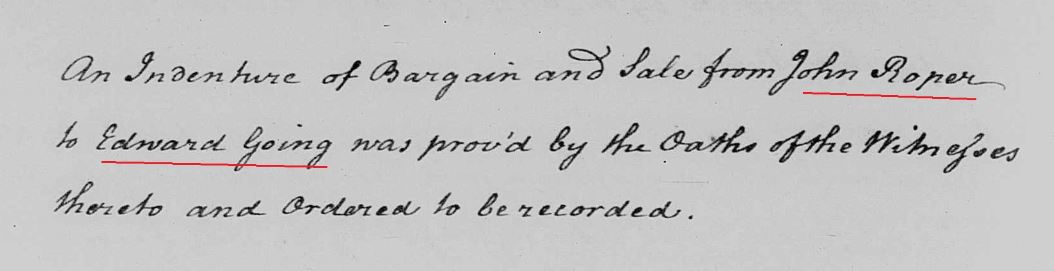 An Indenture of Bargain and Sale from John Roper
to Edward Going was prov'd by the Oaths of the Witneſses
thereto and Ordered to be recorded.